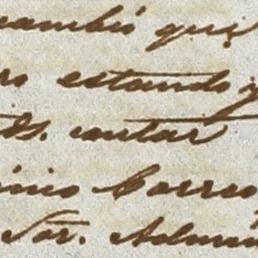 cambió que
ro estando y
ds. contar
imo Correo
Sor. Admin